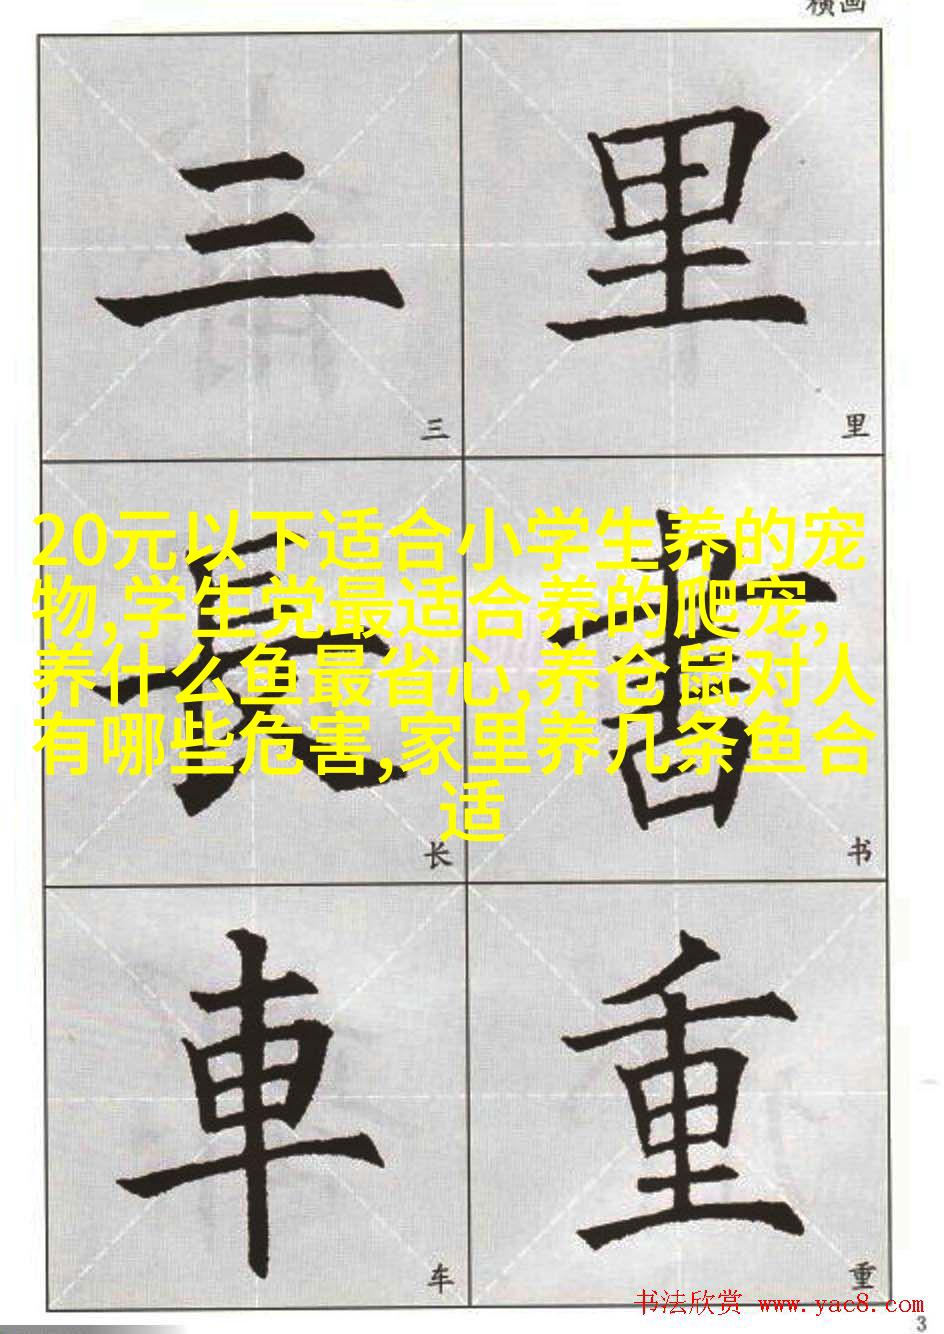 横画
三 里
三 里
20元以下适合小学生养的宠
物,学生党最适合养的爬宠,
养什么鱼最省心,养仓鼠对人
有哪些危害,家里养几条鱼合
适
長 書
长 书
車 重
车 重
书法欣赏 www.yac8.com
3